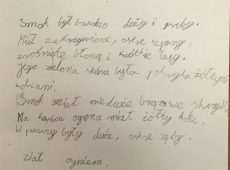 Smok był bardzo duży i gruby.
Miał zakrzywione, ostre szpony,
błoną i krótkie łapy.
Jego zielona skóra była pokryta żółtymi
łuskami.
Smok miał nieduże brązowe skrzydła
Na końcu ogona miał żółty kolec,
W paszczy były duże, ostre zęby.
Ział ogniem.